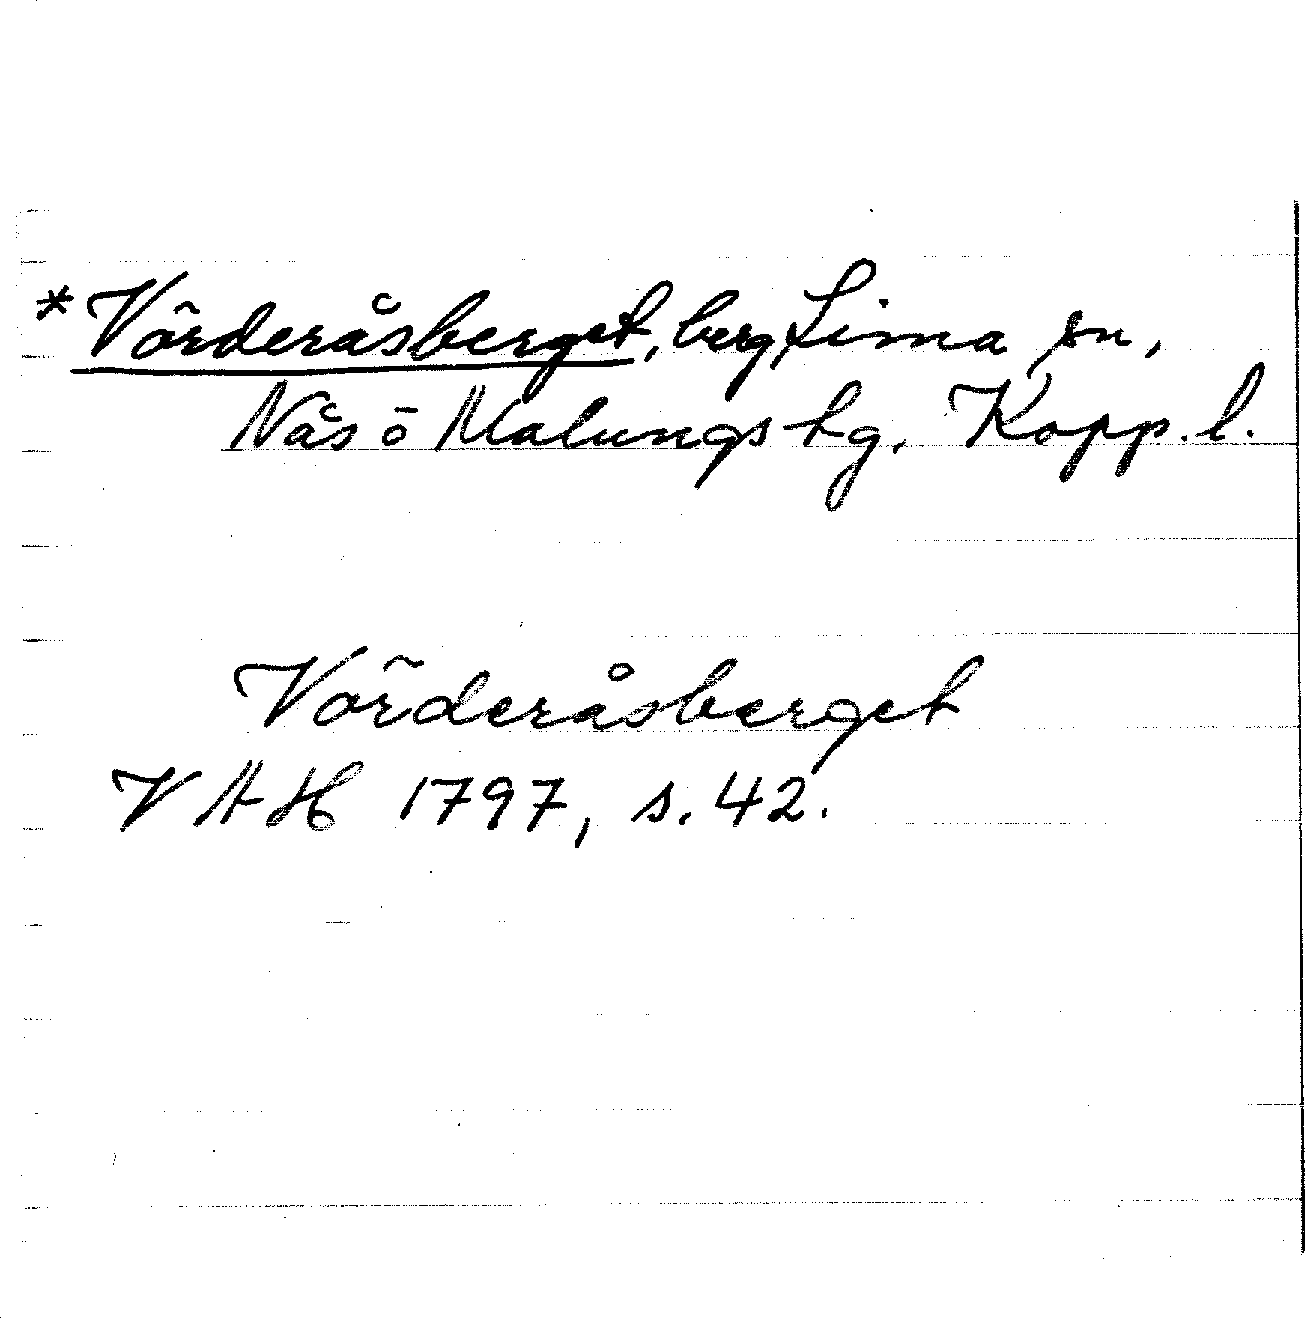 *Vörderåsberget, berg, Lima sn,
Nås ö Malungs tg. Kopp. l.
Vörderåsberget
VAH 1797, s. 42.